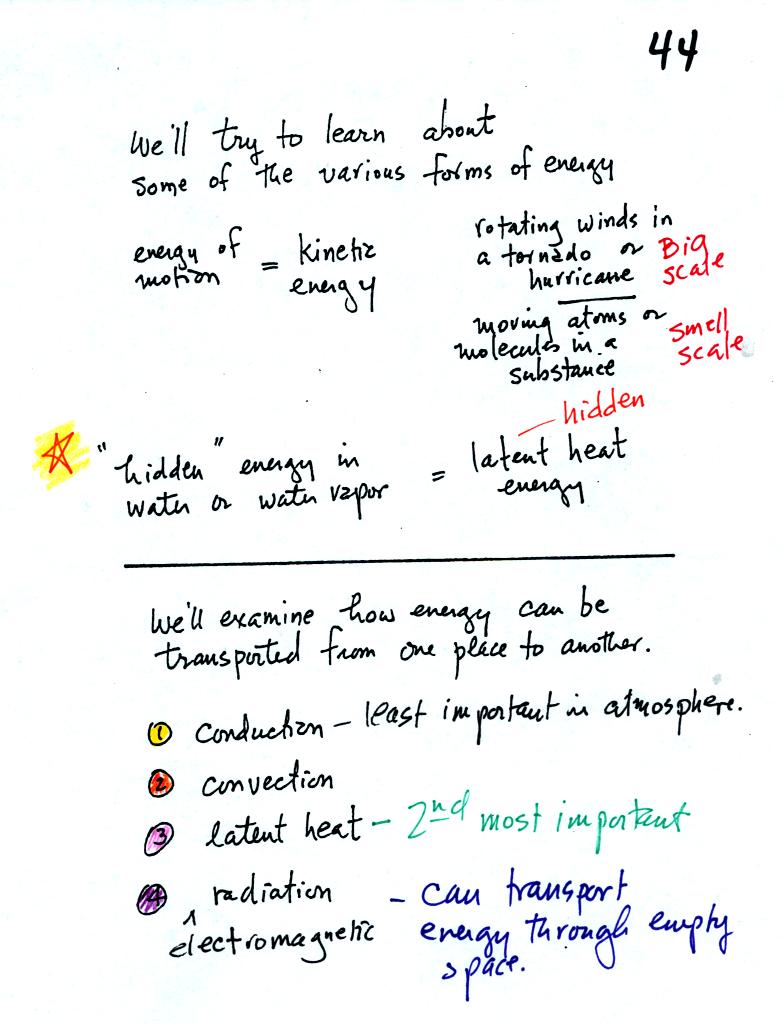 44
We'll try to learn about
some of the various forms of energy
energy of motion = kinetic energy
rotating winds in
a tornado or
hurricane
Big
scale
moving atoms or
molecules in a
substance
smell
scale
hidden
"hidden" energy in
water or water vapor
= latent heat
energy
We'll examine how energy can be
transported from one place to another.
1 conduction – least important in atmosphere.
2 convection
3 latent heat – 2nd most important
4 radiation
^
electromagnetic
– can transport
energy through empty
space.